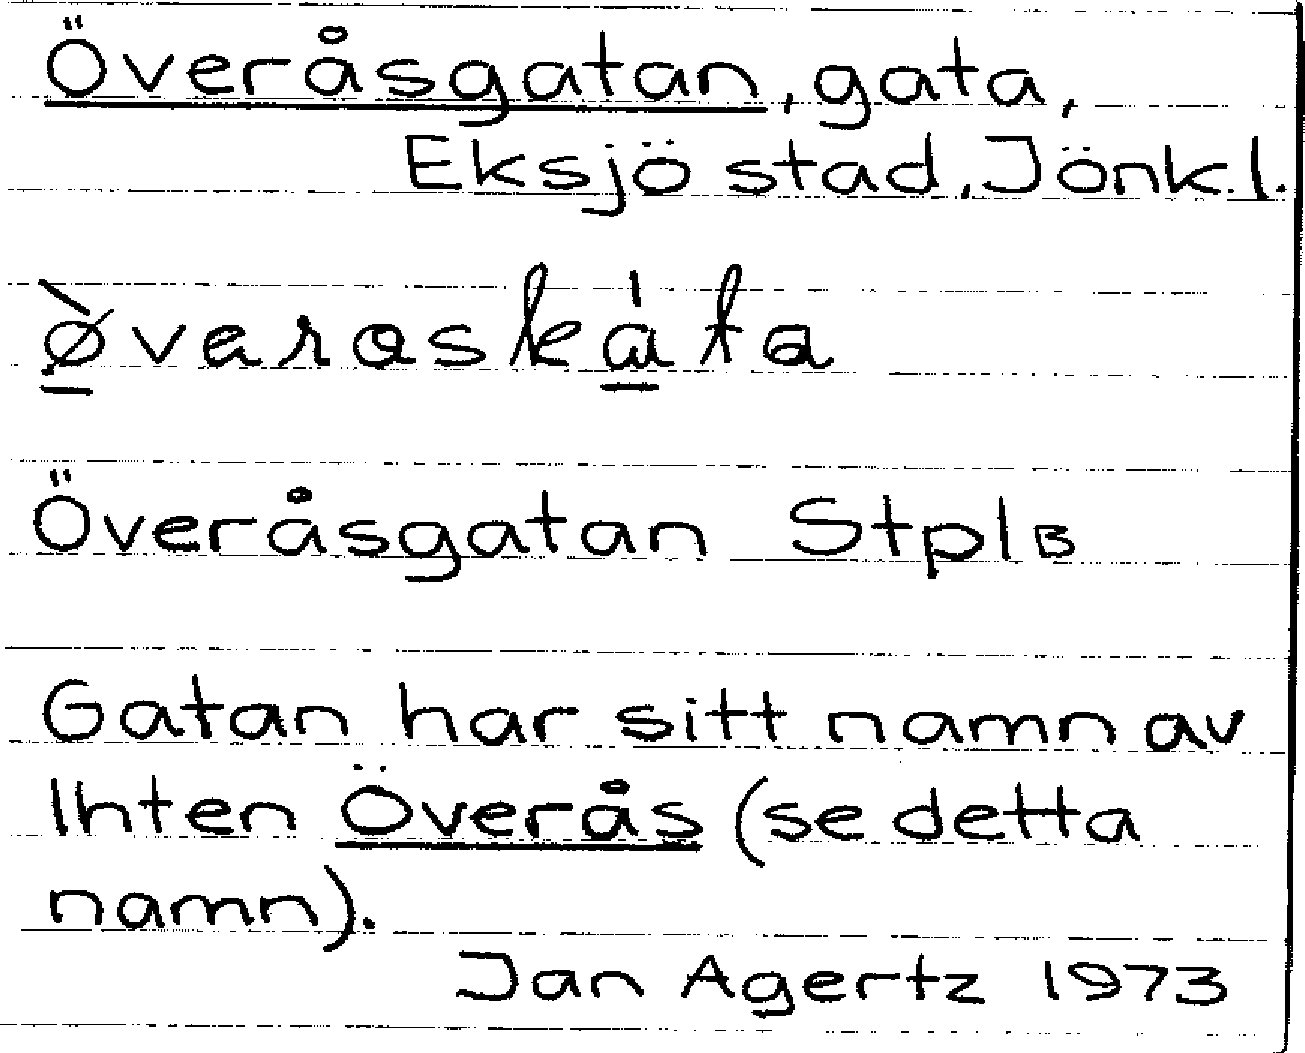 Överåsgatan, gata,
Eksjö stad, Jönk.l.
Överåsgatan StplB
Gatan har sitt namn av
lhten Överås (se detta
namn).
Jan Agertz 1973